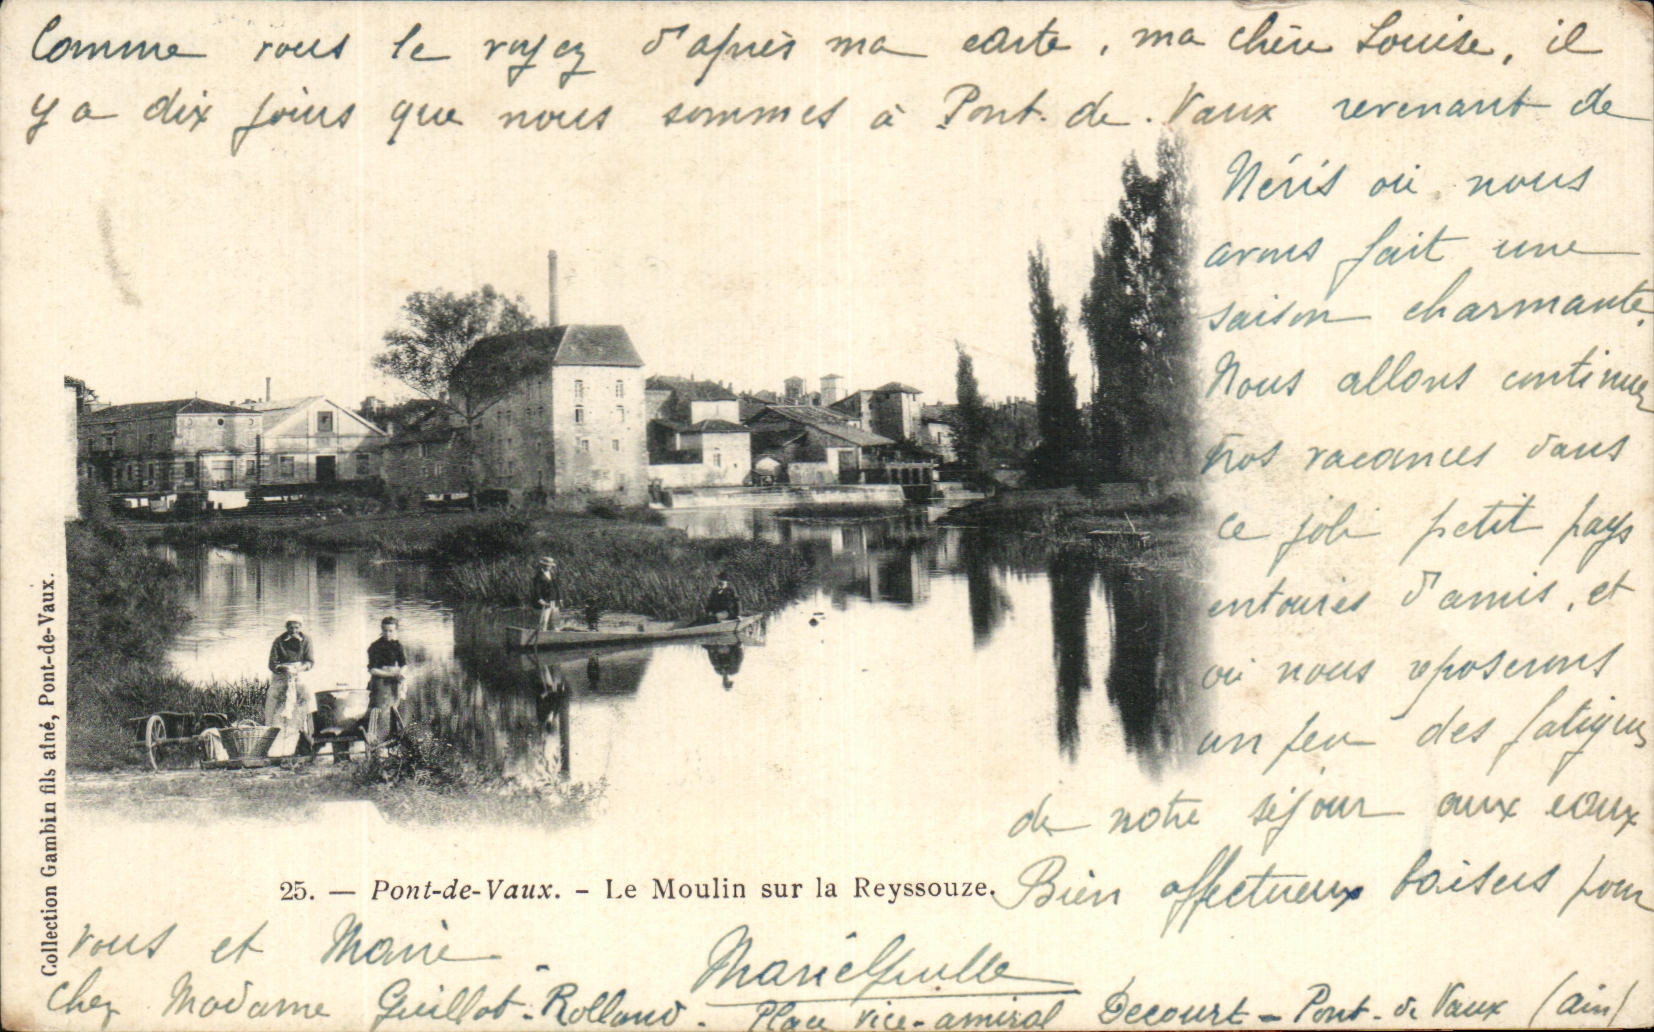 Comme vous le voyez d'après ma carte, ma chère Louise, il
y a dix jours que nous sommes à Pont-de-Vaux revenant de
Néris où nous
avons fait une
saison charmante.
Nous allons continuer
nos vacances dans
ce joli petit pays
entourés d'amis, et
où nous reposerons
un peu des fatigues
de notre séjour aux eaux
Bien affectueux baisers pour
vous et Marie.
chez Madame Guillot-Rolland. Place vice-amiral Decourt - Pont-de Vaux (ain)
25. — Pont-de-Vaux. - Le Moulin sur la Reyssouze.
Collection Gambin fils aîné, Pont-de-Vaux.